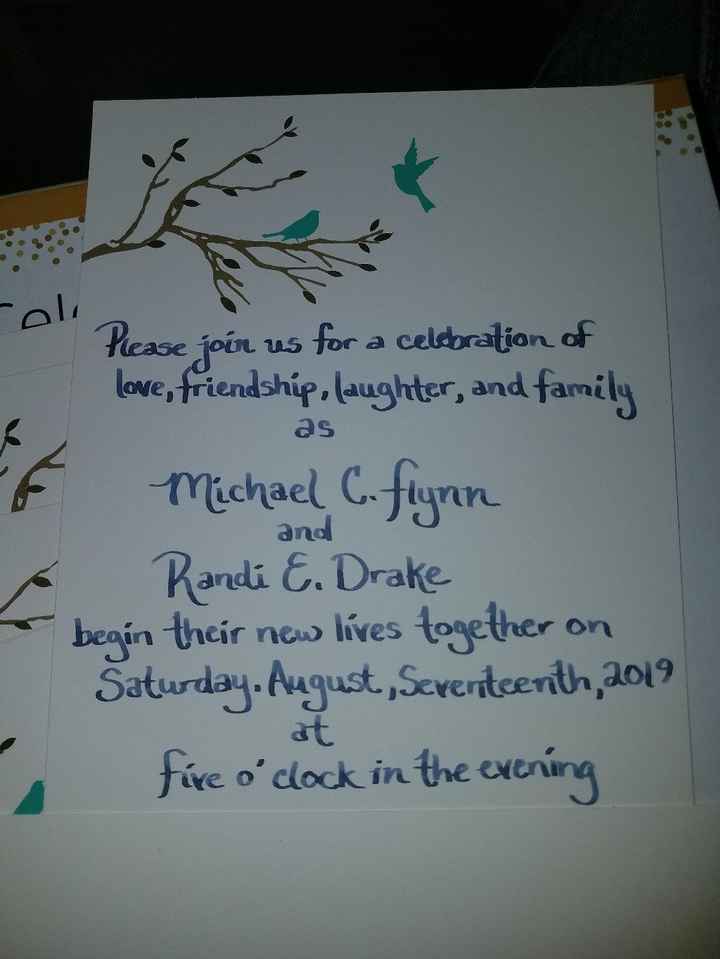 Please join us for a celebration of
love, friendship, laughter, and family
as
Michael C. flynn
and
Randi E. Drake
begin their new lives together on
Saturday. August, Seventeenth, 2019
at
five o'clock in the evening